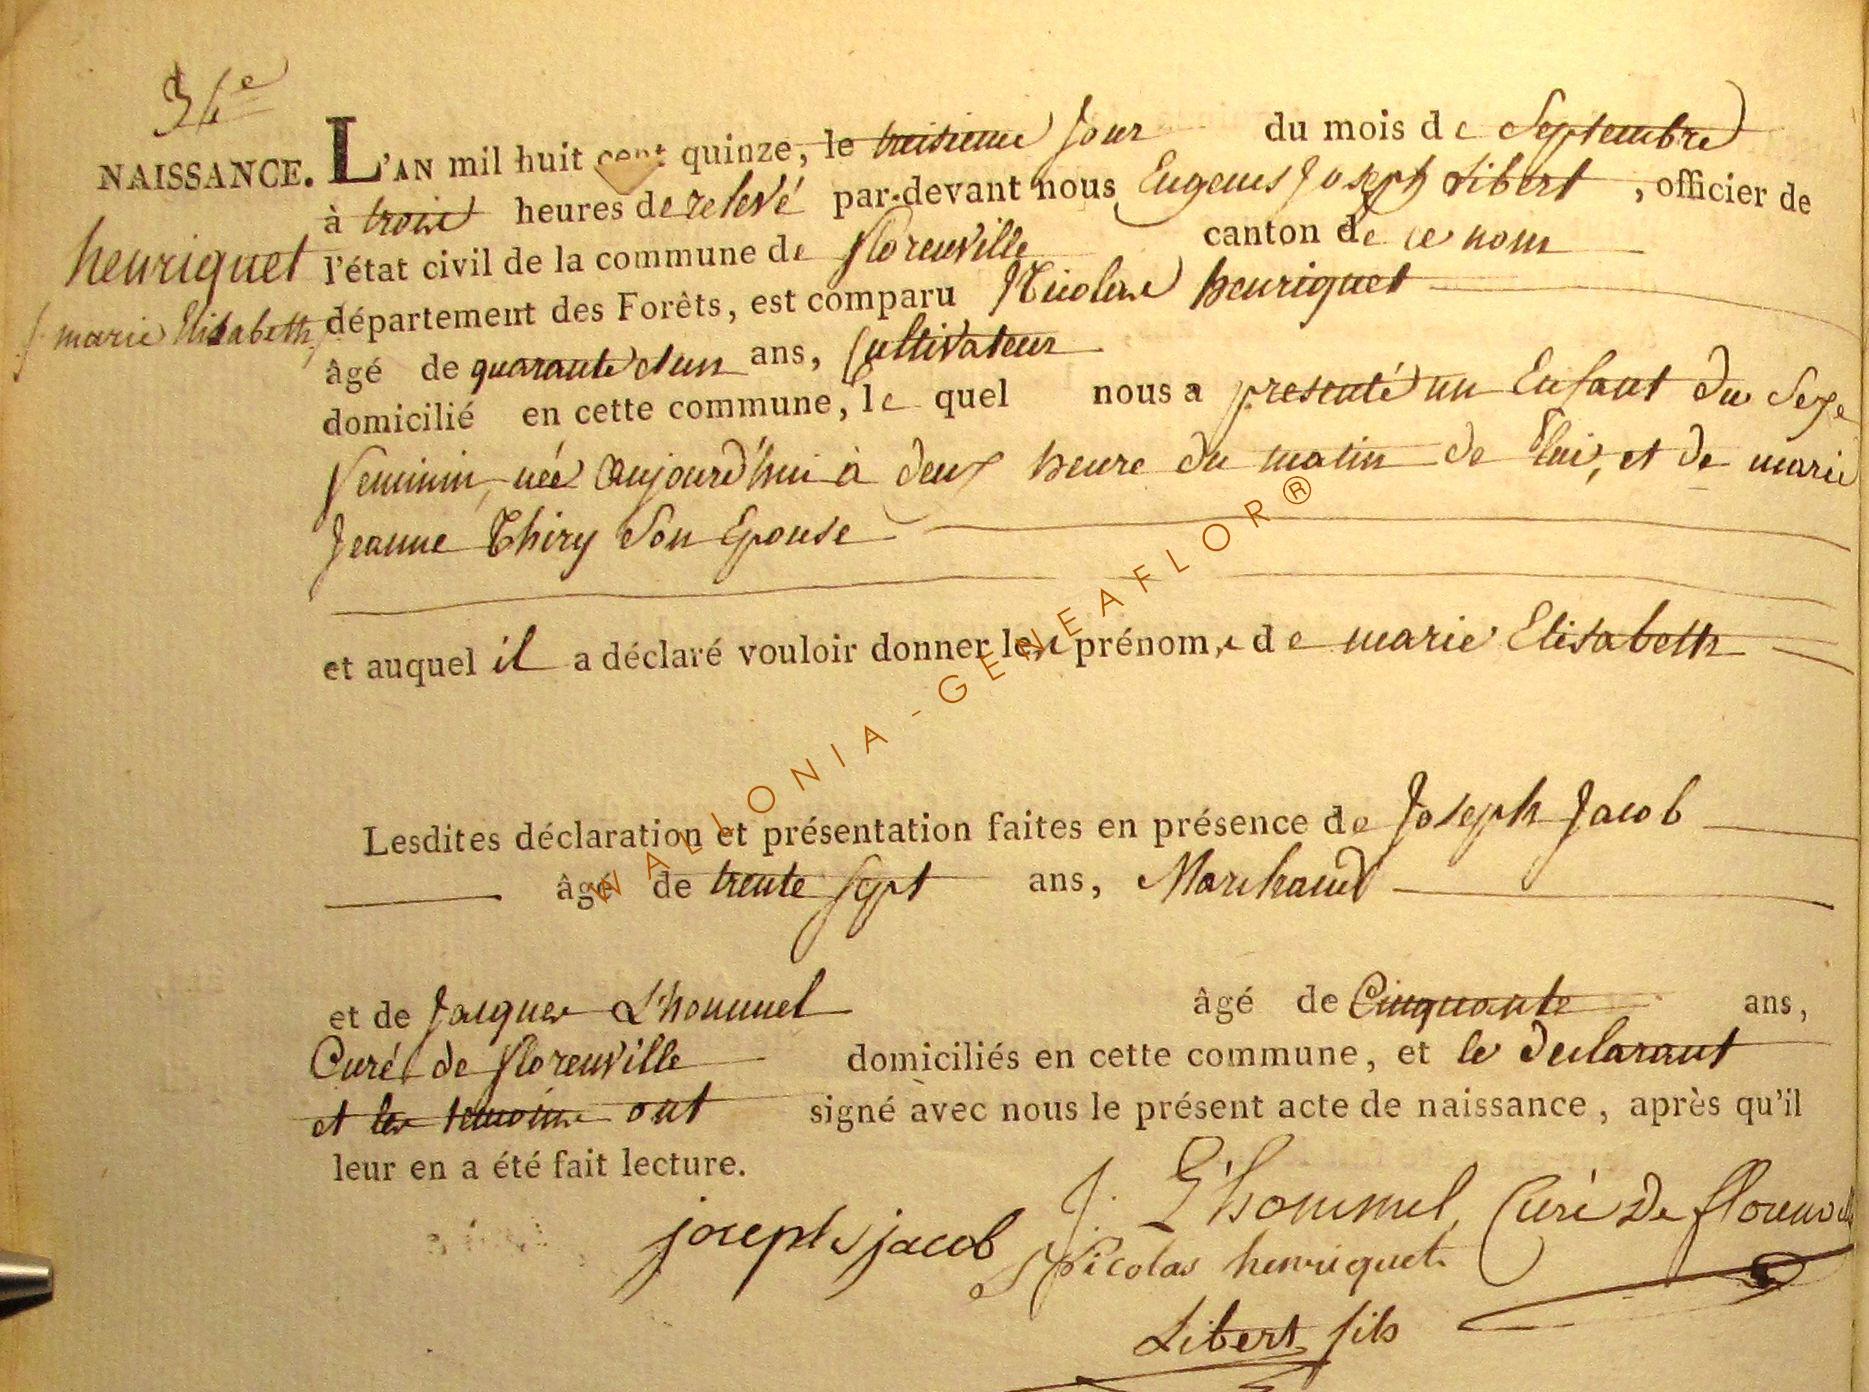 34e
NAISSANCE. L'AN mil huit cent quinze, le troisieme Jour du mois de Septembre
à trois heures de relevé par-devant nous Eugenes Joseph Libert, officier de
henriquet l'état civil de la commune de florenville canton de ce nom
marie Elisabeth département des Forêts, est comparu Nicolas henriquet
âgé de quarante et un ans, Cultivateur
domicilié en cette commune, le quel nous a presenté un Enfant du Sexe
feminin, née aujourd'hui à deux heure du matin de lui, et de marie
Jeanne Thiry Son Epouse
et auquel il a déclaré vouloir donner les prénoms de marie Elisabeth
Lesdites déclaration et présentation faites en présence de Joseph Jacob
âgé de trente Sept ans, Marchand
et de Jacques L'hommel âgé de Cinquante ans,
Curé de florenville domiciliés en cette commune, et le declarant
et les temoins ont signé avec nous le présent acte de naissance, après qu'il
leur en a été fait lecture.
joseph jacob J. L'hommel, Curé De florenville
Nicolas henriquet
Libert fils
WALLONIA - GENEAFLOR®